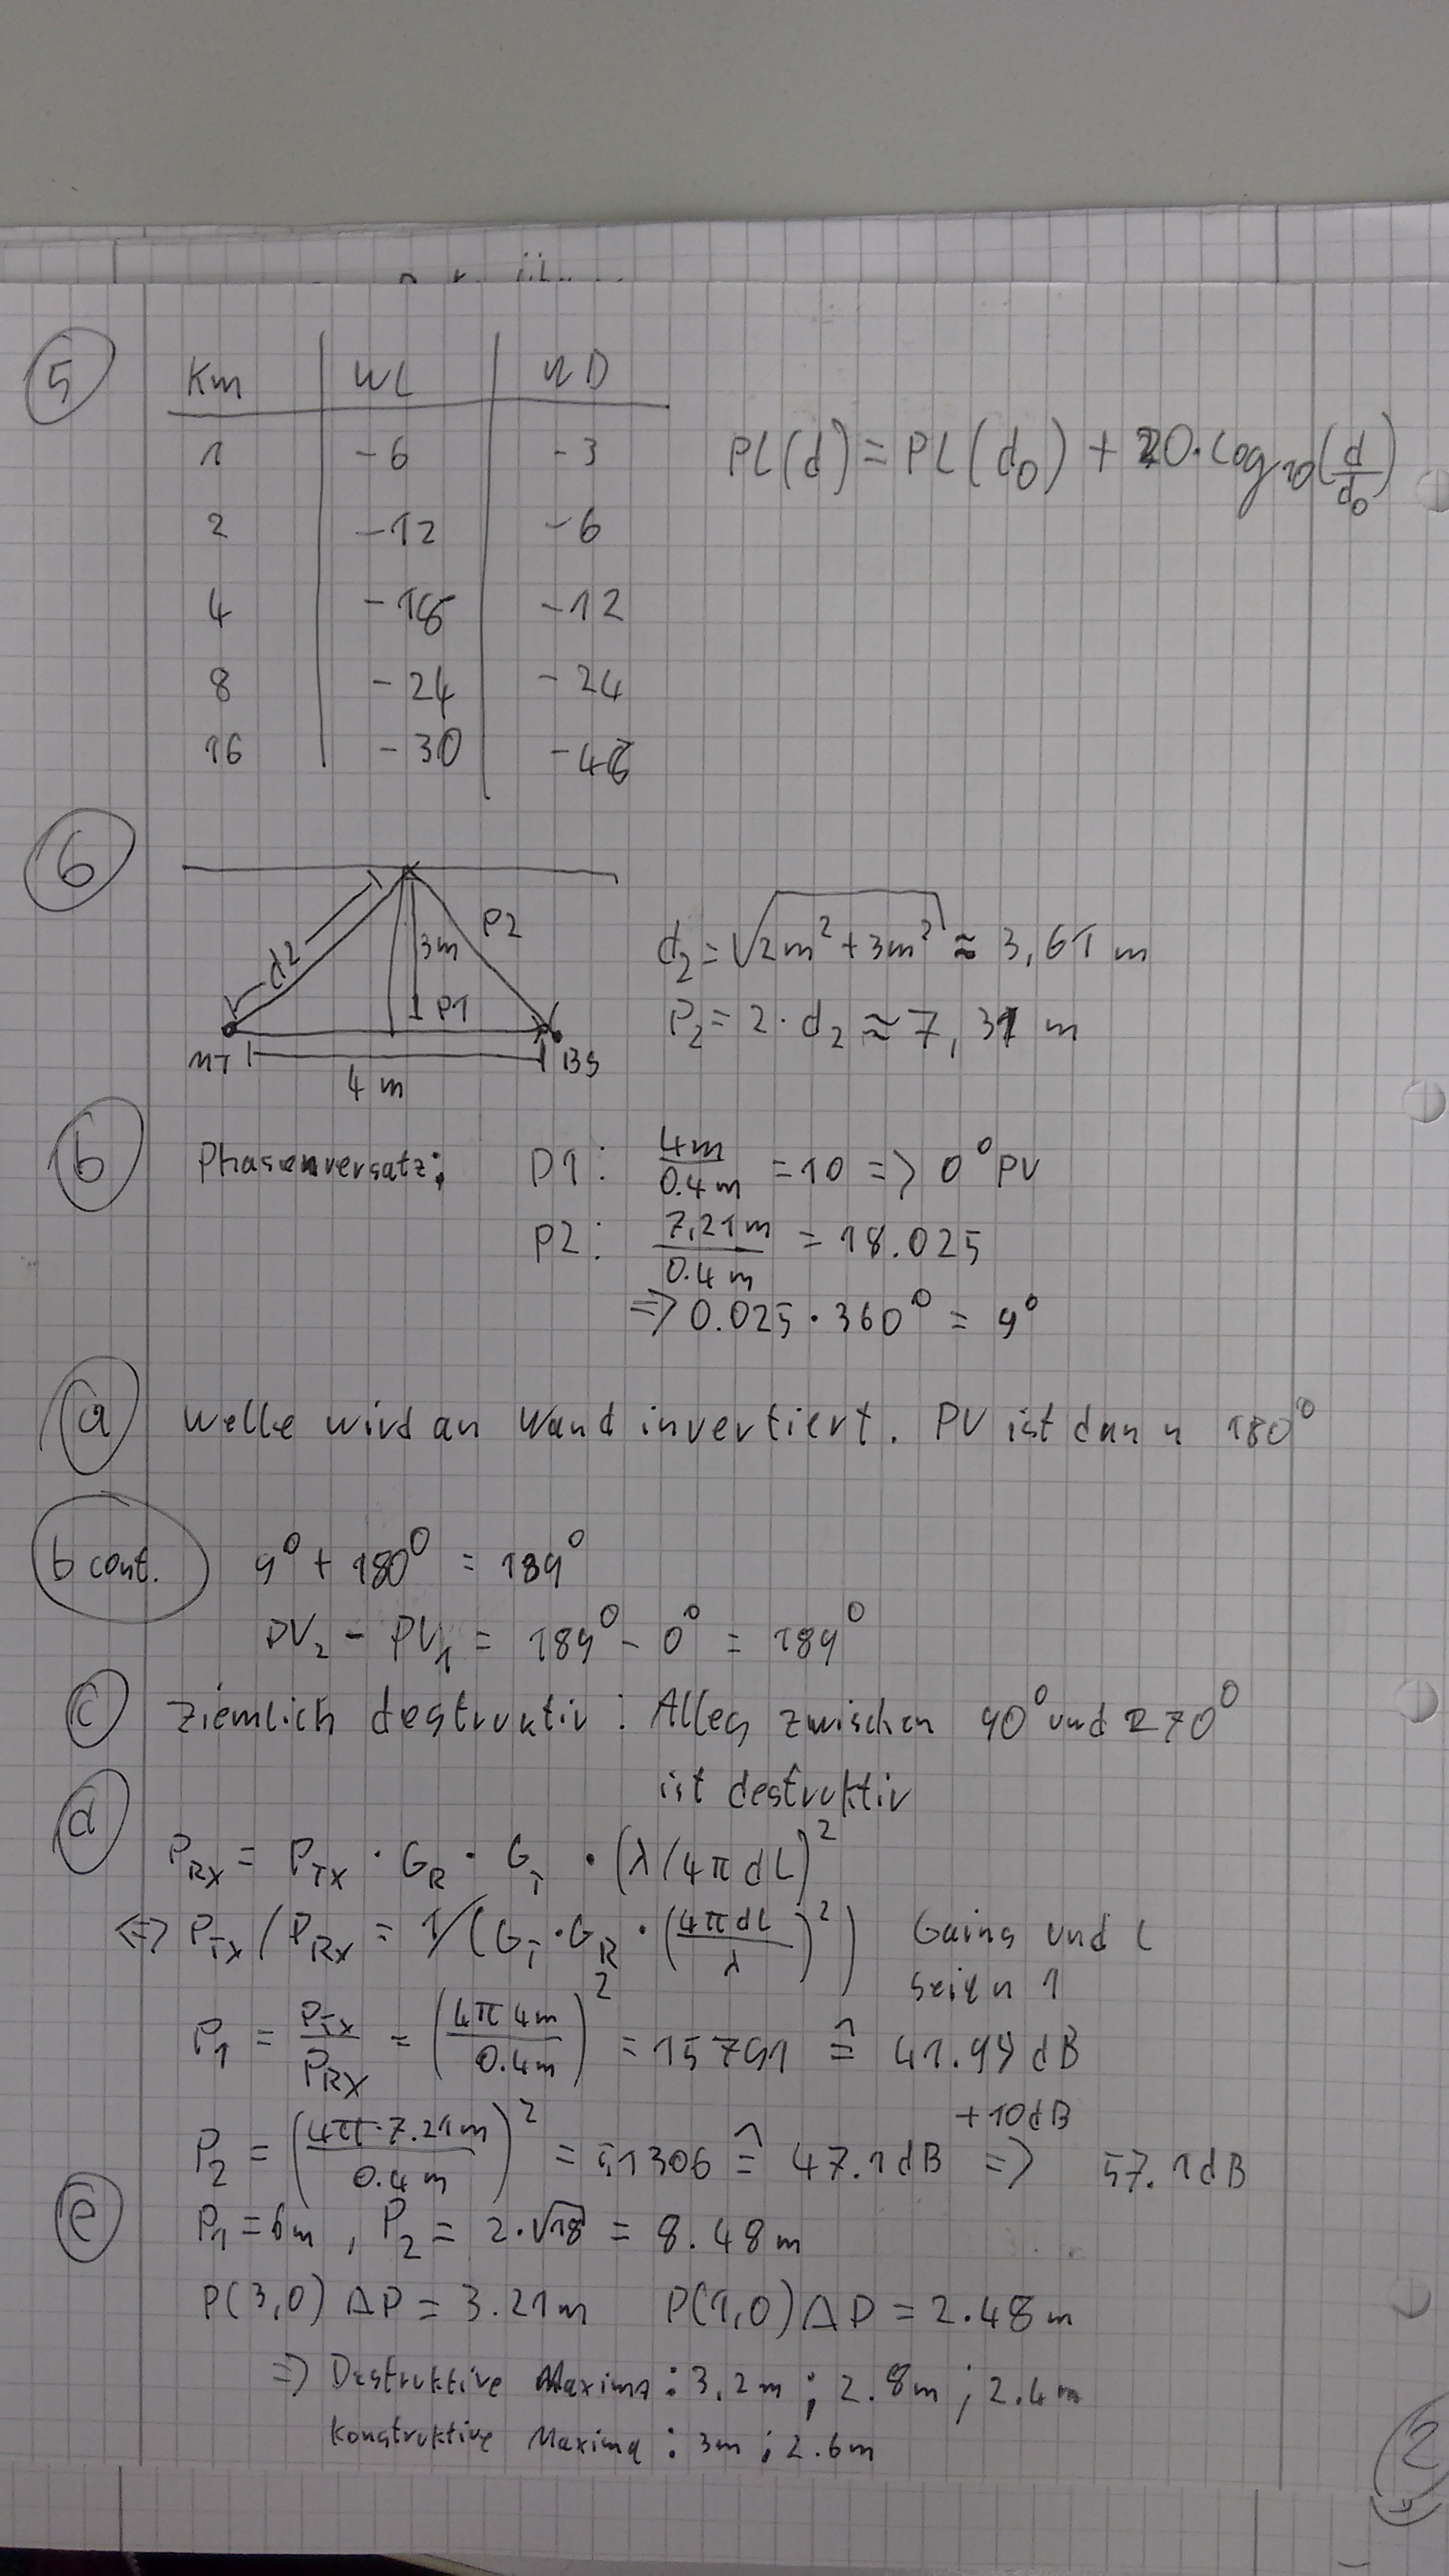 5
Km | WL | ND
1 | -6 | -3
2 | -12 | -6
4 | -18 | -12
8 | -24 | -24
16 | -30 | -48
PL(d) = PL(d₀) + 20·log₁₀(d/d₀)
6
d2
3m
P2
P1
MT
BS
4 m
d₂ = √(2m² + 3m²) ≈ 3,61 m
P₂ = 2 · d₂ ≈ 7,31 m
b
Phasenversatz: P1: 4m/0.4m = 10 => 0° PV
P2: 7,21m/0.4m = 18.025
=> 0.025 · 360° = 9°
a
Welle wird an Wand invertiert. PV ist dann 180°
b cont.
9° + 180° = 189°
PV₂ - PV₁ = 189° - 0° = 189°
c
Ziemlich destruktiv: Alles zwischen 90° und 270°
ist destruktiv
d
P_RX = P_TX · G_R · G_T · (λ/4πdL)²
<=> P_TX / P_RX = 1/(G_T · G_R · (4πdL/λ)²) Gains und L
seien 1
P₁ = P_TX/P_RX = (4π4m/0.4m)² = 15791 ≙ 41.98 dB
P₂ = (4π·7.21m/0.4m)² = 51306 ≙ 47.1 dB +10dB => 57.1 dB
e
P₁ = 6m, P₂ = 2·√18 = 8.48m
P(3,0) ΔP = 3.21m P(1,0) ΔP = 2.48m
=> Destruktive Maxima: 3,2m ; 2.8m ; 2.4m
Konstruktive Maxima: 3m ; 2.6m
2